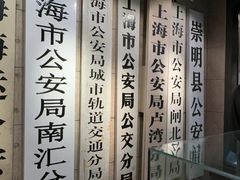 崇明县公安局
上海市公安局闸北分局
上海市公安局卢湾分局
上海市公安局公交分局
海市公安局城市轨道交通分局
海市公安局南汇分